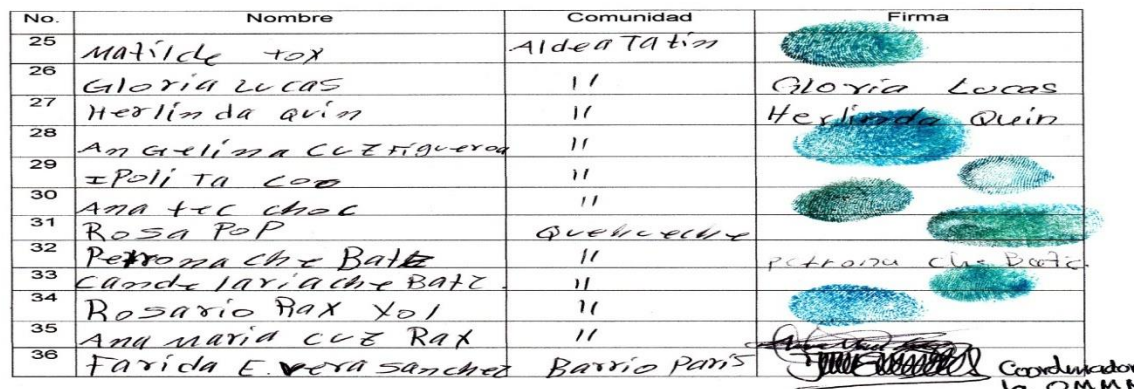 No. Nombre Comunidad Firma
25 Matilde tox Aldea Tatin
26 Gloria Lucas " Gloria Lucas
27 Herlinda quin " Herlinda Quin
28 Angelina cuz Figueroa "
29 IPoliTa coo "
30 Ana tec choc "
31 Rosa PoP Quehueche
32 Petrona che Batz " petrona che Batz.
33 candelaria che Batz. "
34 Rosario Rax Xol "
35 Ana maria cuz Rax "
36 Farida E. vera sanchez Barrio Paris Coordinador
la OMM